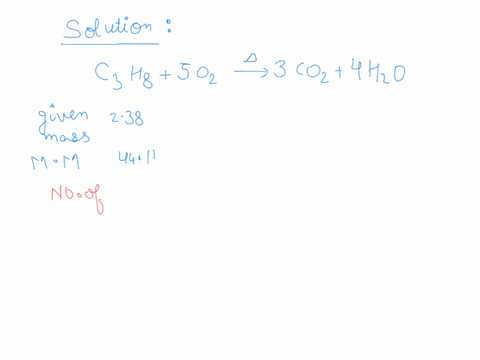 Solution :
C3H8 + 5O2 →Δ 3CO2 + 4H2O
given 2.38
mass
M.M 44.11
NO.of